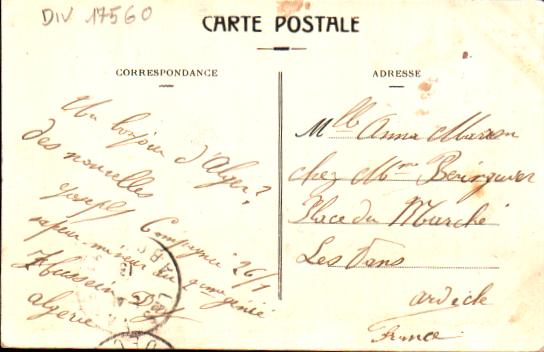 DIV 17560
CARTE POSTALE
CORRESPONDANCE
Un bonjour d'Alger
des nouvelles ?
Joseph Compagnie 26/1
sapeur-mineur au 2me génie
Hussein Dey
algérie
ADRESSE
Mlle Anna
chez Mme
Place du Marché
Les Vans
ardèche
France